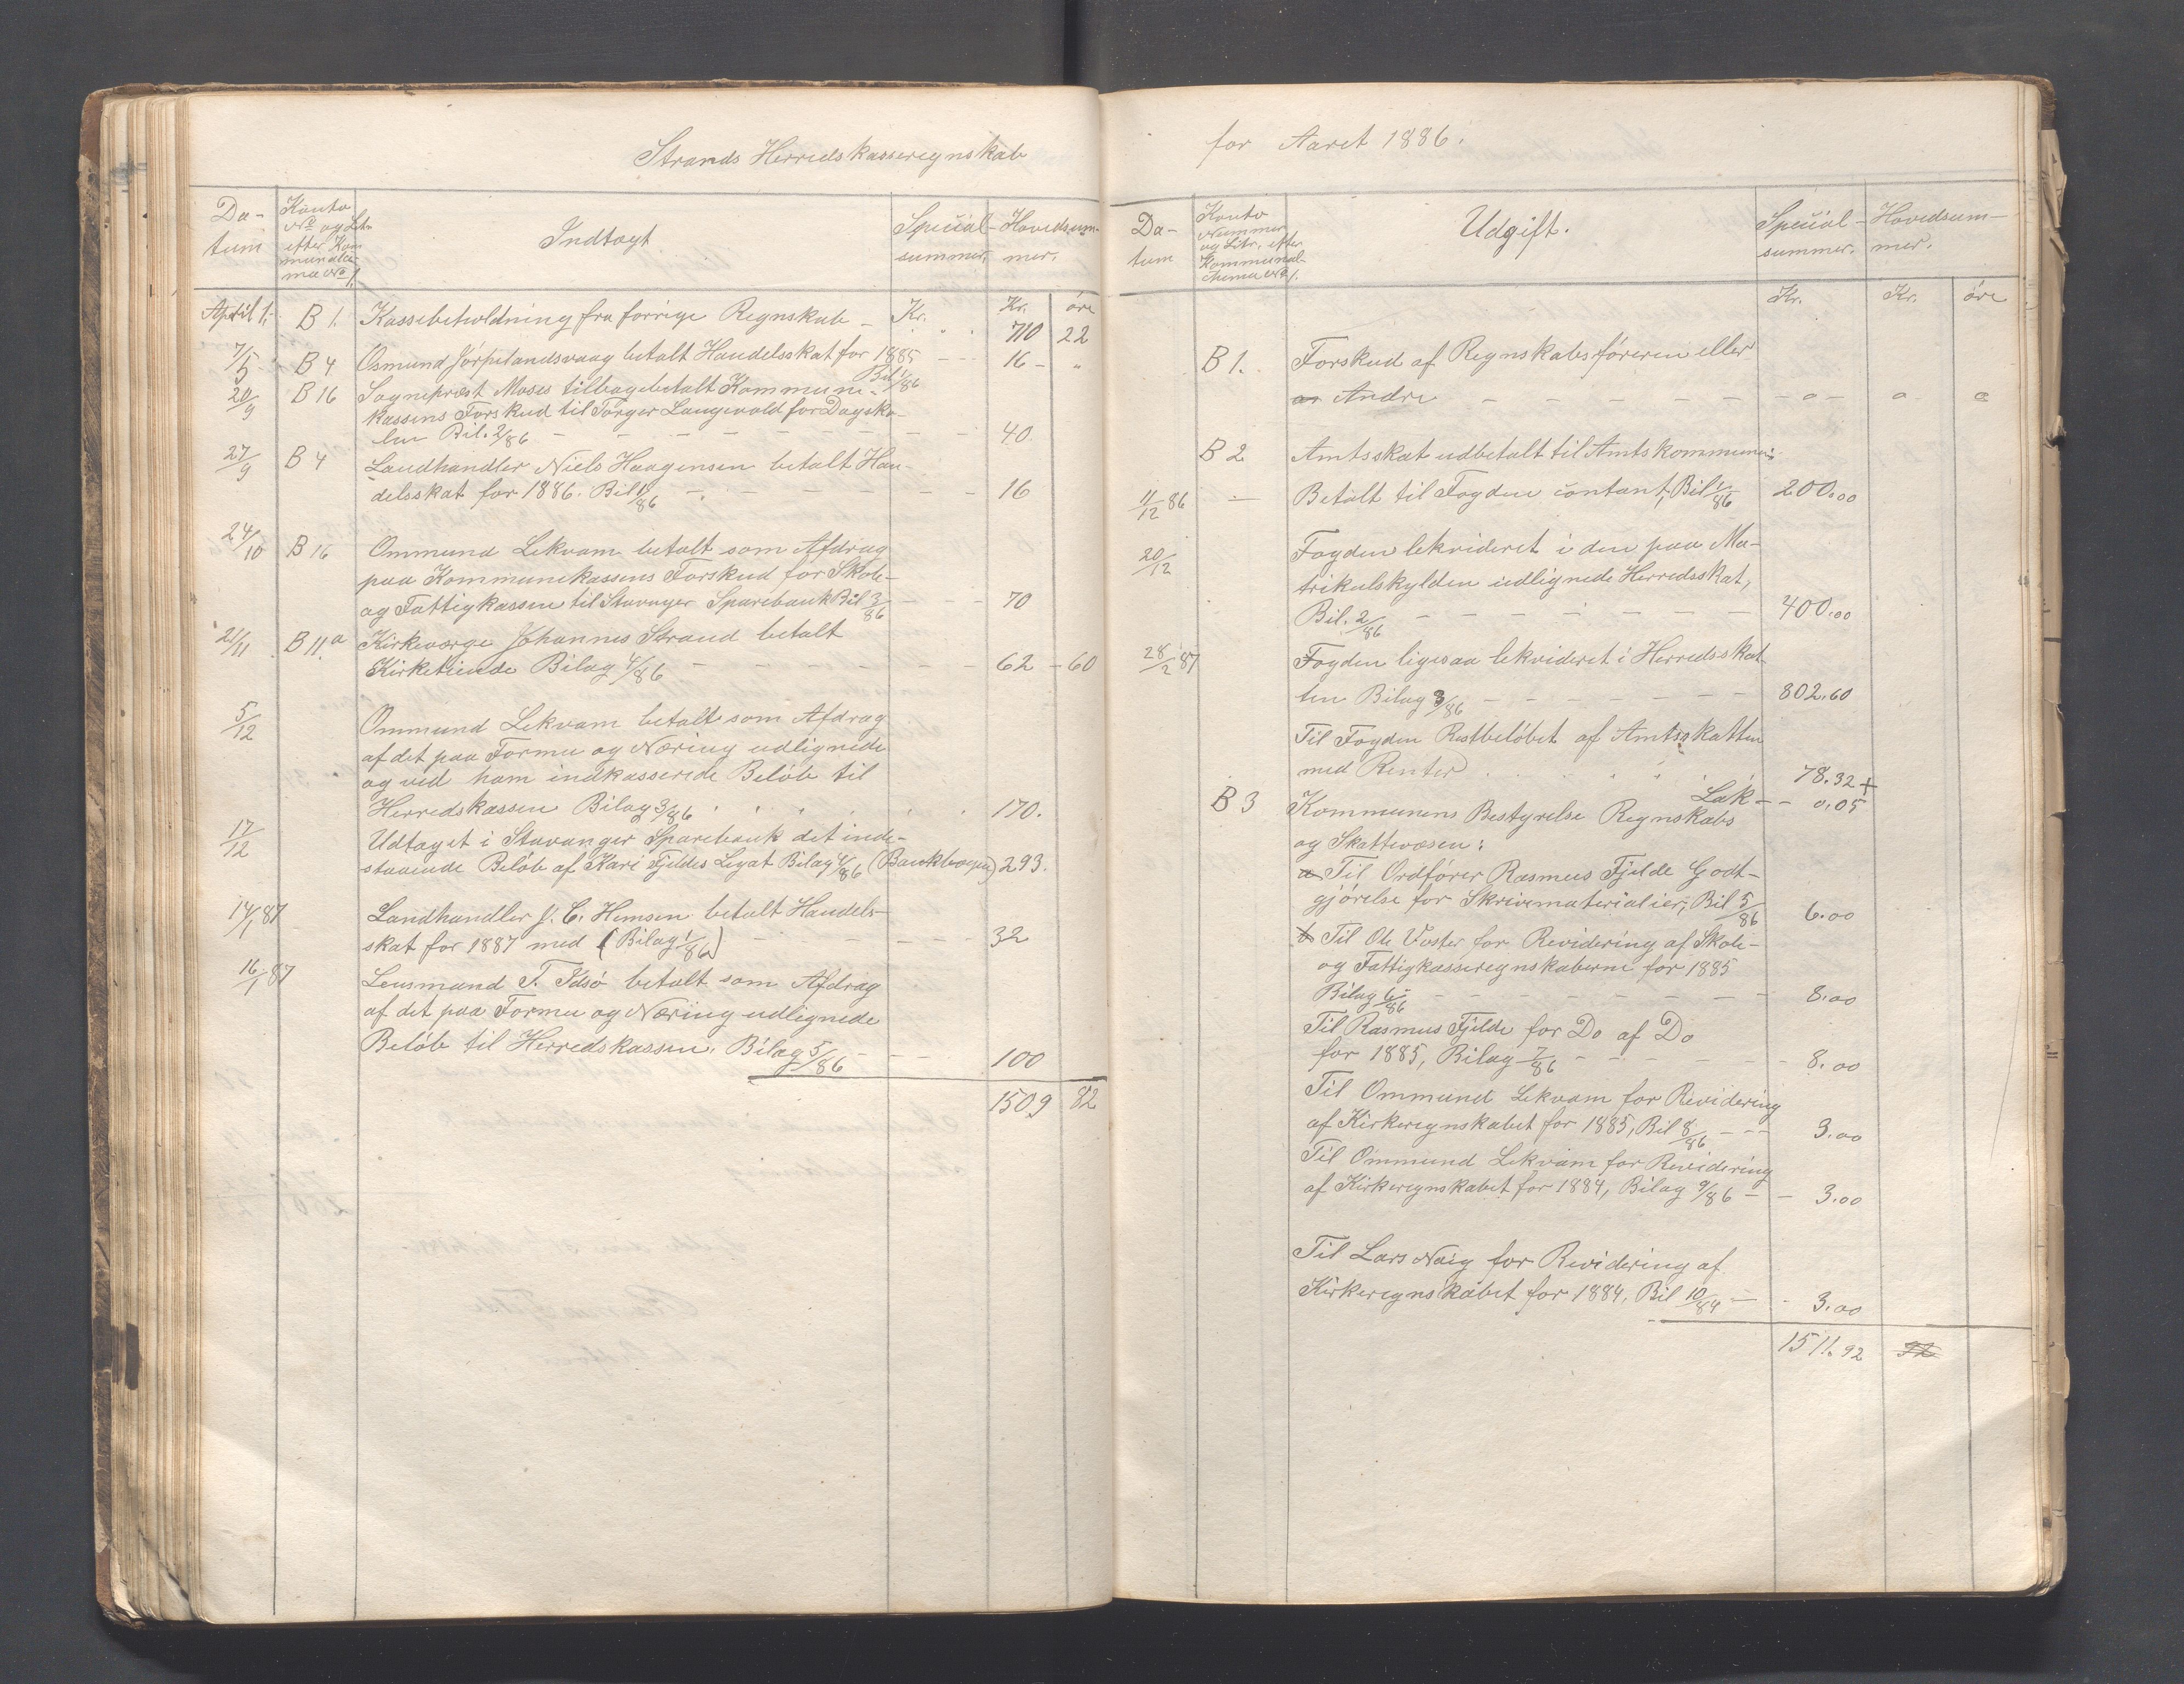 Strands Herredskasseregnskab
Da-
tum
Konto
No og Lit.
efter Kom
munalsche-
ma No 1.
Indtægt
Special-
summer.
Hovedsum-
mer.
April 1. B 1. Kassebeholdning fra forrige Regnskab – Kr. Kr. öre
710 22
7/5 B 4 Osmund Jörpelandsvaag betalt Handelsskat for 1885 – – 16 – "
Bil 1/86
20/9 B 16 Sogneprest Moses tilbagebetalt Kommune-
kassens Forskud til Törger Langevold for Dagsko-
len Bil. 2/86 – – – – – – – – 40.
27/9 B 4 Landhandler Niels Haagensen betalt Han-
delsskat for 1886. Bil 1/86 – – – – – – – 16
24/10 B 16 Ommund Lekvam betalt som Afdrag
paa Kommunekassens Forskud for Skole-
og Fattigkassen til Stavanger Sparebank Bil 3/86 – – – 70
21/11 B 11 a Kirkeværge Johannes Strand betalt
Kirketiende Bilag 4/86 – – – – – – – 62 – 60
5/12 Ommund Lekvam betalt som Afdrag
af det paa Formue og Næring udlignede
og ved ham indkasserede Beløb til
Herredskassen Bilag 3/86 " " " " " 170.
17/12 Udtaget i Stavanger Sparebank det inde-
staaende Beløb af Kari Fjeldes Legat Bilag 4/86 (Bankbogen) 293.
14/1 87 Landhandler J. C. Hemsen betalt Handels-
skat for 1887 med (Bilag 1/86) – – – – – 32
16/1 87 Lensmand T. Idsö betalt som Afdrag
af det paa Formue og Næring udlignede
Beløb til Herredskassen. Bilag 5/86 – – – 100
1509 82
for Aaret 1886.
Da-
tum
Konto
Nummer
og Litr. efter
Kommunal-
schema No 1.
Udgift.
Special-
summer.
Hovedsum-
mer.
Kr. Kr. öre
B 1. Forskud af Regnskabsföreren eller
Andre – – – – – – – o – o o
B 2 Amtsskat udbetalt til Amtskommunen:
11/12 86 – Betalt til Fogden contant, Bil 1/86 200.00
20/12 Fogden lekvideret i den paa Ma-
trikulskylden udlignede Herredsskat,
Bil. 2/86 – – – – – – – 400.00
28/2 87 Fogden ligesaa lekvideret i Herredsskat-
ten Bilag 3/86 – – – – – – – 802.60
Til Fogden Restbeløbet af Amtsskatten
med Renter . . . . . 78.32 +
Lak – – 0.05
B 3 Kommunens Bestyrelse Regnskabs
og Skattevæsen:
a Til Ordfører Rasmus Fjelde Godt-
gjörelse for Skrivematerialier, Bil 5/86 6.00
b Til Ole Voster for Revidering af Skole-
og Fattigkasseregnskaberne for 1885
Bilag 6/86 – – – – – – – 8.00
Til Rasmus Fjelde for Do af Do
for 1885, Bilag 7/86 – – – – – – 8.00
Til Ommund Lekvam for Revidering
af Kirkeregnskabet for 1885, Bil 8/86 – – – 3.00
Til Ommund Lekvam for Revidering
af Kirkeregnskabet for 1884, Bilag 9/86 – – 3.00
Til Lars Næig for Revidering af
Kirkeregnskabet for 1884, Bil 10/84 – – 3.00
1511.92 92